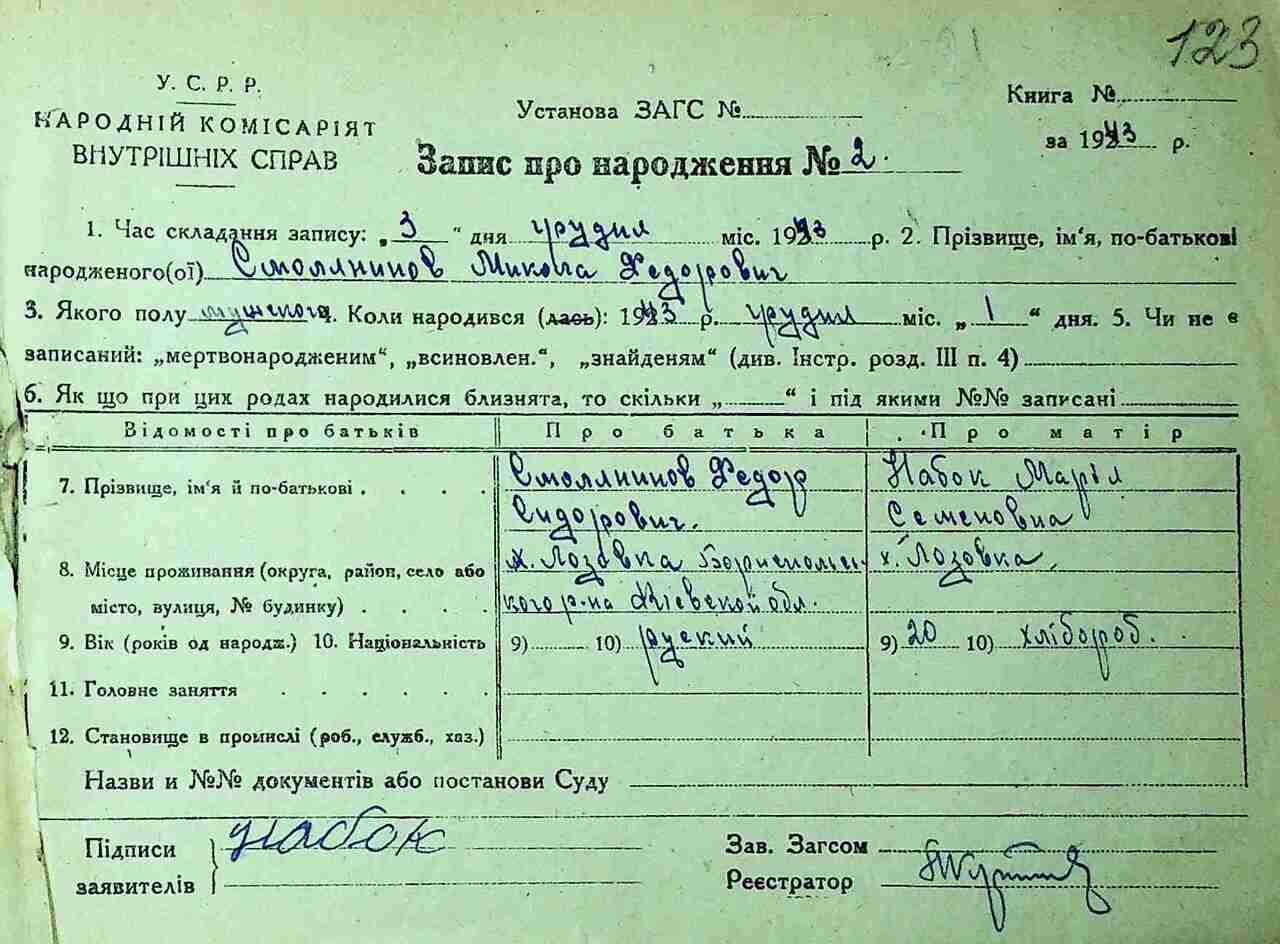 123
У. С. Р. Р.
НАРОДНІЙ КОМІСАРІЯТ
ВНУТРІШНІХ СПРАВ
Установа ЗАГС №
Книга №
за 1943 р.
Запис про народження № 2.
1. Час складання запису: „ 3 “ дня грудня міс. 1943 р. 2. Прізвище, ім‘я, по-батькові
народженого(ої) Смоллнинов Микола Федорович
3. Якого полу мужского. Коли народився (лась): 1943 р. грудня міс. „ 1 “ дня. 5. Чи не є
записаний: „мертвонародженим“, „всиновлен.“, „знайденям“ (див. Інстр. розд. III п. 4)
6. Як що при цих родах народилися близнята, то скільки „ “ і під якими №№ записані
Відомості про батьків Про батька Про матір
7. Прізвище, ім‘я й по-батькові . . . . Смоллнинов Федор Набок Марія
Сидорович. Семеновна
8. Місце проживання (округа, район, село або х. Лозовка Борисполь- х. Лозовка,
місто, вулиця, № будинку) . . . . кого р-на Кіевской обл.
9. Вік (років од народж.) 10. Національність 9) 10) руский 9) 20 10) хлібороб.
11. Головне заняття . . . . . .
12. Становище в промислі (роб., служб., хаз.)
Назви и №№ документів або постанови Суду
Підписи Набок
заявителів
Зав. Загсом
Реєстратор